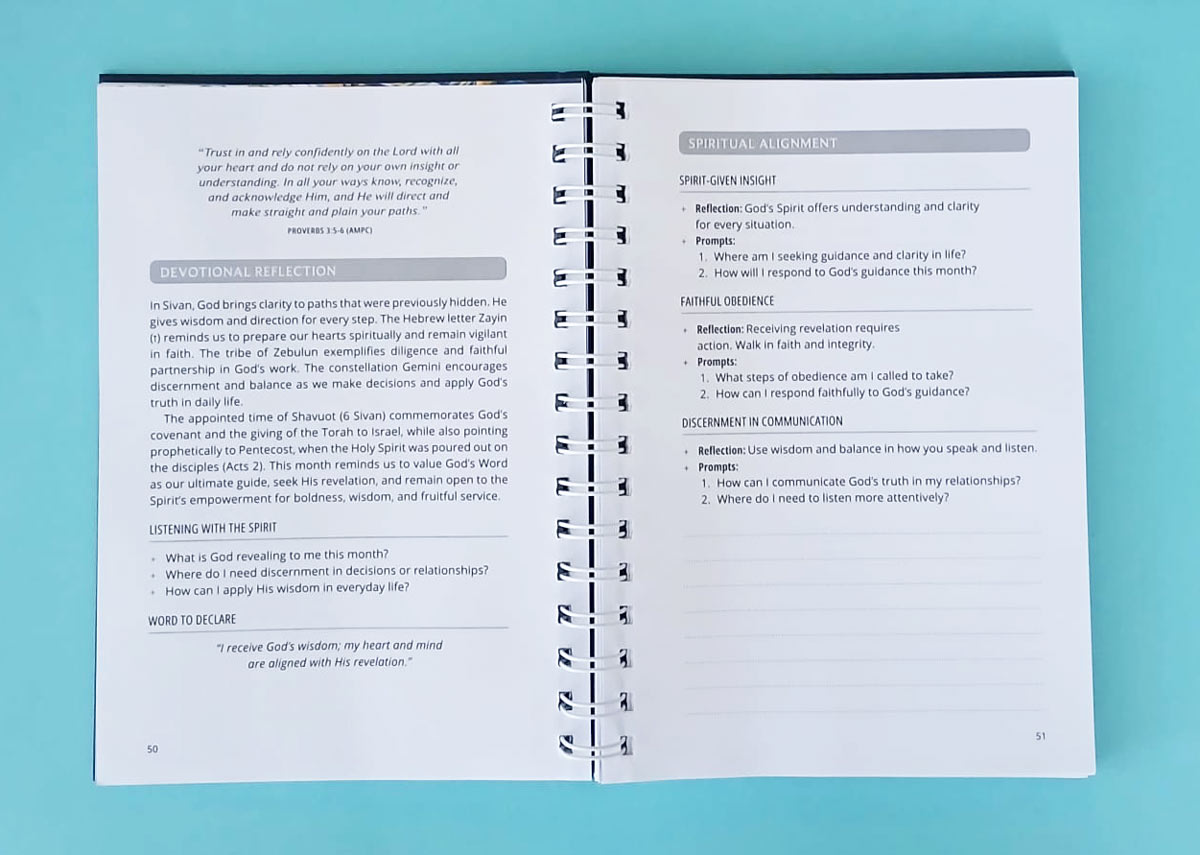 “Trust in and rely confidently on the Lord with all
your heart and do not rely on your own insight or
understanding. In all your ways know, recognize,
and acknowledge Him, and He will direct and
make straight and plain your paths.”
PROVERBS 3:5-6 (AMPC)
DEVOTIONAL REFLECTION
In Sivan, God brings clarity to paths that were previously hidden. He
gives wisdom and direction for every step. The Hebrew letter Zayin
(ז) reminds us to prepare our hearts spiritually and remain vigilant
in faith. The tribe of Zebulun exemplifies diligence and faithful
partnership in God's work. The constellation Gemini encourages
discernment and balance as we make decisions and apply God's
truth in daily life.
The appointed time of Shavuot (6 Sivan) commemorates God's
covenant and the giving of the Torah to Israel, while also pointing
prophetically to Pentecost, when the Holy Spirit was poured out on
the disciples (Acts 2). This month reminds us to value God's Word
as our ultimate guide, seek His revelation, and remain open to the
Spirit's empowerment for boldness, wisdom, and fruitful service.
LISTENING WITH THE SPIRIT
+ What is God revealing to me this month?
+ Where do I need discernment in decisions or relationships?
+ How can I apply His wisdom in everyday life?
WORD TO DECLARE
“I receive God's wisdom; my heart and mind
are aligned with His revelation.”
50
SPIRITUAL ALIGNMENT
SPIRIT-GIVEN INSIGHT
+ Reflection: God's Spirit offers understanding and clarity
for every situation.
+ Prompts:
1. Where am I seeking guidance and clarity in life?
2. How will I respond to God's guidance this month?
FAITHFUL OBEDIENCE
+ Reflection: Receiving revelation requires
action. Walk in faith and integrity.
+ Prompts:
1. What steps of obedience am I called to take?
2. How can I respond faithfully to God's guidance?
DISCERNMENT IN COMMUNICATION
+ Reflection: Use wisdom and balance in how you speak and listen.
+ Prompts:
1. How can I communicate God's truth in my relationships?
2. Where do I need to listen more attentively?
51